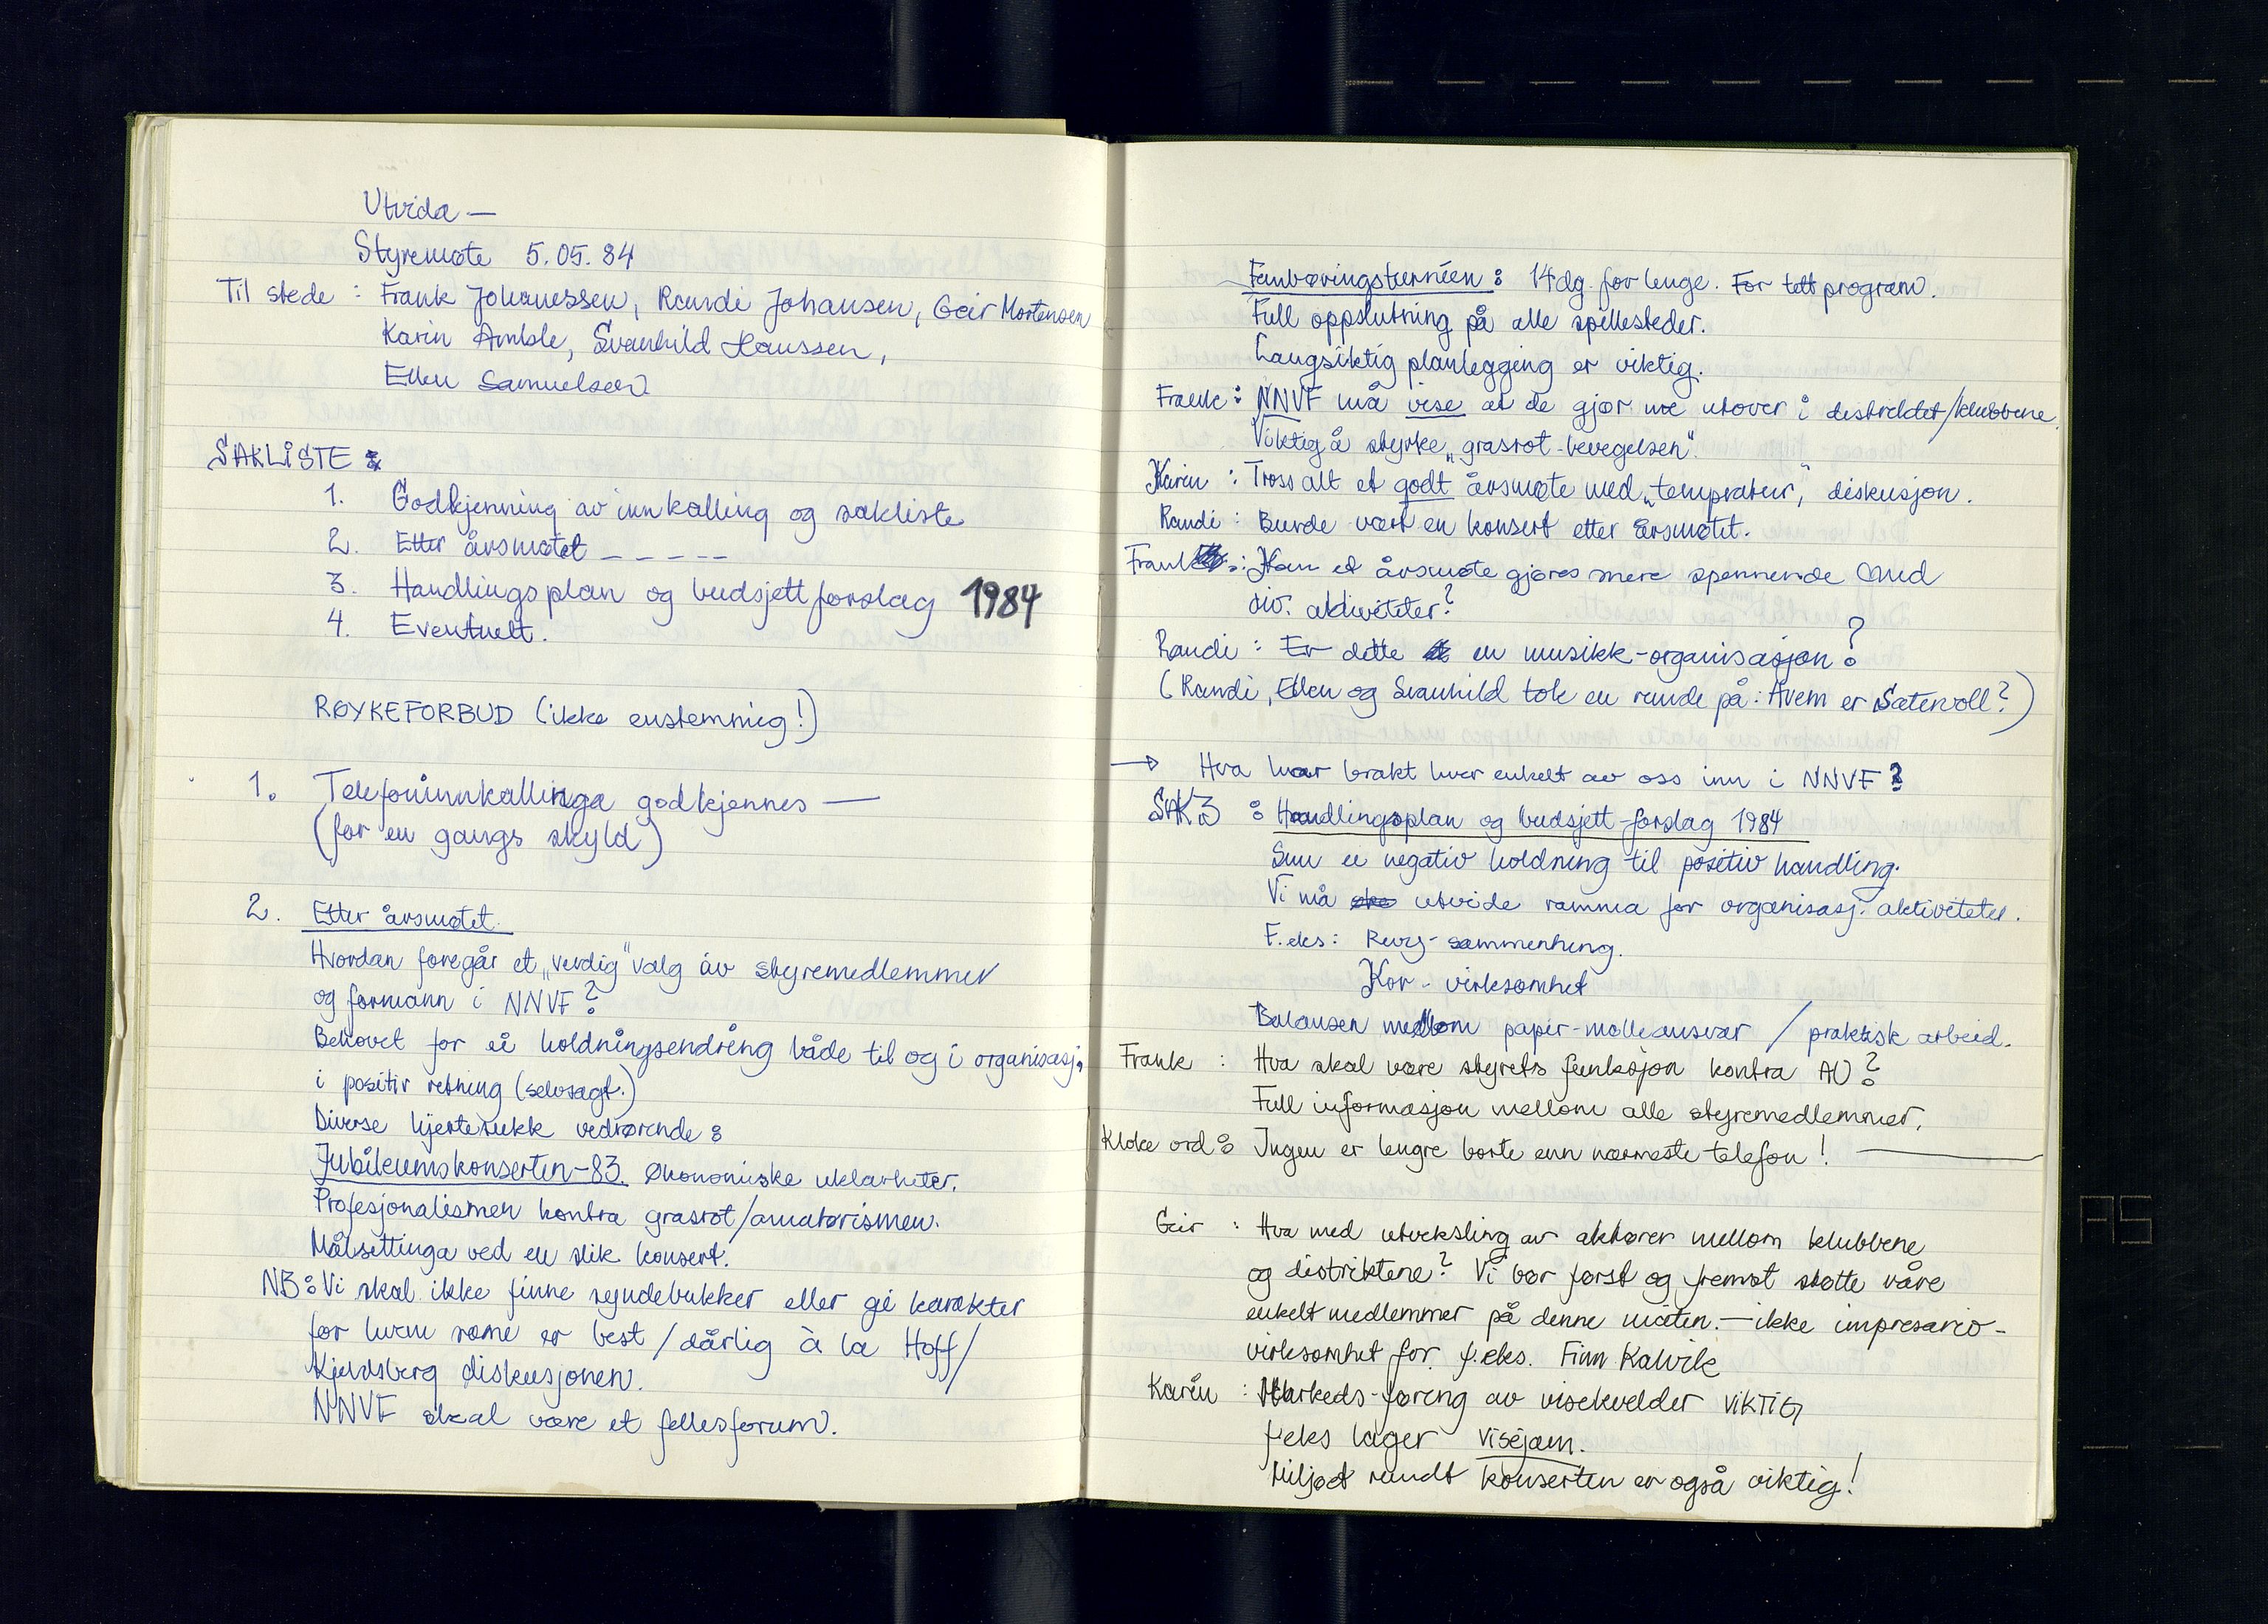 Utvida —
Styremøte 5.05.84
Til stede : Frank Johanessen, Randi Johansen, Geir Mortensen
Karin Amble, Svanhild Hanssen,
Ellen Samuelsen
SAKLISTE :
1. Godkjenning av innkalling og sakliste
2. Etter årsmøtet – – – – –
3. Handlingsplan og budsjettforslag 1984
4. Eventuelt.
RØYKEFORBUD (ikke enstemmig!)
1. Telefoninnkallinga godkjennes —
(for en gangs skyld)
2. Etter årsmøtet.
Hvordan foregår et „verdig" valg av styremedlemmer
og formann i NNVF?
Behovet for ei holdningsendring både til og i organisasj.
i positiv retning (selvsagt.)
Diverse hjertesukk vedrørende :
Jubileumskonserten-83. Økonomiske uklarheter.
Profesjonalismen kontra grasrot/amatørismen.
Målsettinga ved en slik konsert.
NB: Vi skal ikke finne syndebukker eller gi karakter
for hvem some er best / dårlig à la Hoff/
Kjeldsberg diskusjonen.
NNVF skal være et fellesforum.
Fembøringsturnéen : 14 dg. for lenge. For tett program.
Full oppslutning på alle spillesteder.
Langsiktig planlegging er viktig.
Frank : NNVF må vise at de gjør noe utover i distriktet/klubbene.
Viktig å styrke „grasrot-bevegelsen".
Karin : Tross alt et godt årsmøte med „tempratur", diskusjon.
Randi : Burde vært en konsert etter årsmøtet.
Frank : Kan et årsmøte gjøres mere spennende med
div. aktiviteter?
Randi : Er dette en musikk-organisasjon?
(Randi, Ellen og Svanhild tok en runde på: Hvem er Sætervoll?)
→ Hva har brakt hver enkelt av oss inn i NNVF?
SAK 3 : Handlingsplan og budsjett-forslag 1984
Snu ei negativ holdning til positiv handling.
Vi må utvide ramma for organisasj. aktiviteter.
F.eks: Revy-sammenheng.
Kor-virksomhet
Balansen mellom papir-mølleansvar / praktisk arbeid.
Frank : Hva skal være styrets funksjon kontra AU?
Full informasjon mellom alle styremedlemmer.
Kloke ord : Ingen er lengre borte enn nærmeste telefon! —
Geir : Hva med utveksling av aktører mellom klubbene
og distriktene? Vi bør først og fremst støtte våre
enkeltmedlemmer på denne måten. — ikke impresario-
virksomhet for f.eks. Finn Kalvik
Karin : Markeds-føring av visekvelder VIKTIG
f.eks lager visejam.
Miljøet rundt konserten er også viktig!